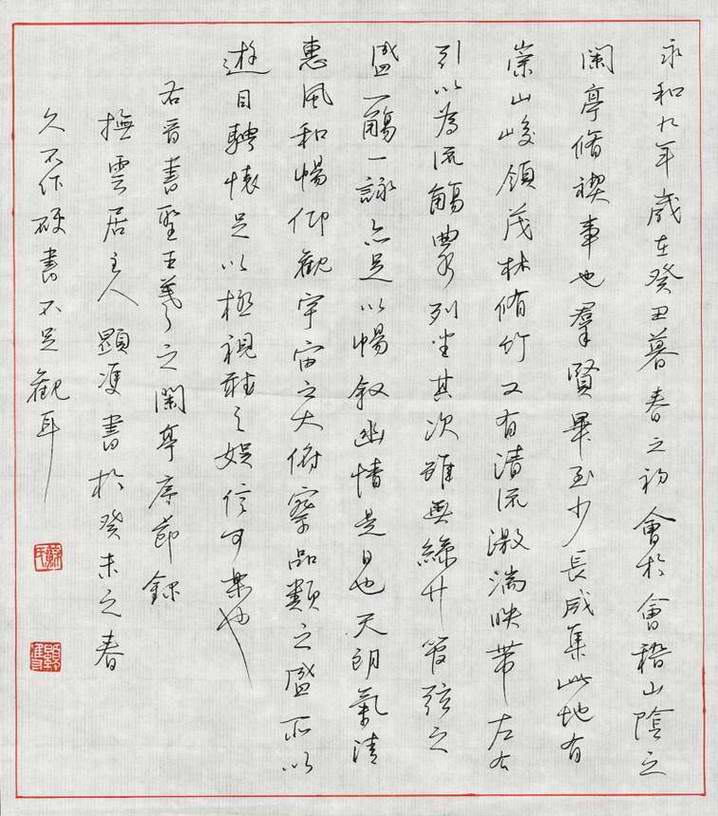 永和九年歲在癸丑暮春之初會於會稽山陰之
蘭亭脩禊事也羣賢畢至少長咸集此地有
崇山峻領茂林脩竹又有清流激湍映帶左右
引以為流觴曲水列坐其次雖無絲竹管弦之
盛一觴一詠亦足以暢叙幽情是日也天朗氣清
惠風和暢仰觀宇宙之大俯察品類之盛所以
遊目騁懷足以極視聽之娛信可樂也
右晉書聖王羲之蘭亭序節錄
撫雲居主人顯濩書於癸未之春
久不作硬書不足觀耳
蘇氏